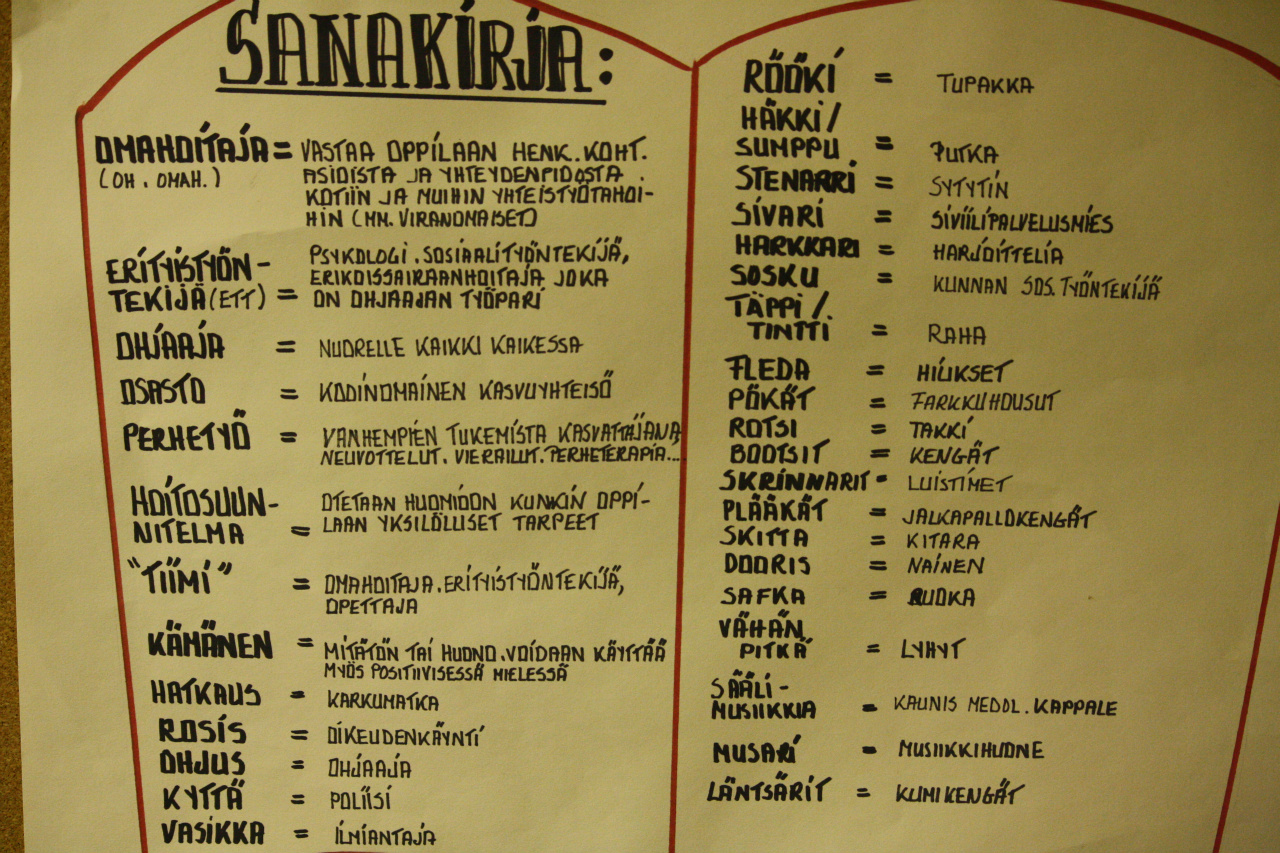 SANAKIRJA:
OMAHOITAJA = VASTAA OPPILAAN HENK.KOHT.
(OH. OMAH.) ASIOISTA JA YHTEYDENPIDOSTA
KOTIIN JA MUIHIN YHTEISTYÖTAHOI-
HIN (MM. VIRANOMAISET)
PSYKOLOGI. SOSIAALITYÖNTEKIJÄ,
ERITYISTYÖN- ERIKOISSAIRAANHOITAJA JOKA
TEKIJÄ (ETT) = ON OHJAAJAN TYÖPARI
OHJAAJA = NUORELLE KAIKKI KAIKESSA
OSASTO = KODINOMAINEN KASVUYHTEISÖ
PERHETYÖ = VANHEMPIEN TUKEMISTA KASVATTAJANA
NEUVOTTELUT. VIERAILUT. PERHETERAPIA...
HOITOSUUN- OTETAAN HUOMIOON KUNKIN OPPI-
NITELMA = LAAN YKSILÖLLISET TARPEET
"TIIMI" = OMAHOITAJA. ERITYISTYÖNTEKIJÄ,
OPETTAJA
KÄMÄNEN = MITÄTÖN TAI HUONO. VOIDAAN KÄYTTÄÄ
MYÖS POSITIIVISESSÄ MIELESSÄ
HATKAUS = KARKUMATKA
ROSIS = OIKEUDENKÄYNTI
OHJUS = OHJAAJA
KYTTÄ = POLIISI
VASIKKA = ILMIANTAJA
RÖÖKI = TUPAKKA
HÄKKI /
SUMPPU = PUTKA
STENARRI = SYTYTIN
SIVARI = SIVIILIPALVELUSMIES
HARKKARI = HARJOITTELIA
SOSKU = KUNNAN SOS. TYÖNTEKIJÄ
TÄPPI /.
TINTTI = RAHA
FLEDA = HIUKSET
PÖKÄT = FARKKUHOUSUT
ROTSI = TAKKI
BOOTSIT = KENGÄT
SKRINNARIT = LUISTIMET
PLÄÄKÄT = JALKAPALLOKENGÄT
SKITTA = KITARA
DOORIS = NAINEN
SAFKA = RUOKA
VÄHÄN
PITKÄ = LYHYT
SÄÄLI-
MUSIIKKIA = KAUNIS MEDOL. KAPPALE
MUSARI = MUSIIKKIHUONE
LÄNTSÄRIT = KUMIKENGÄT